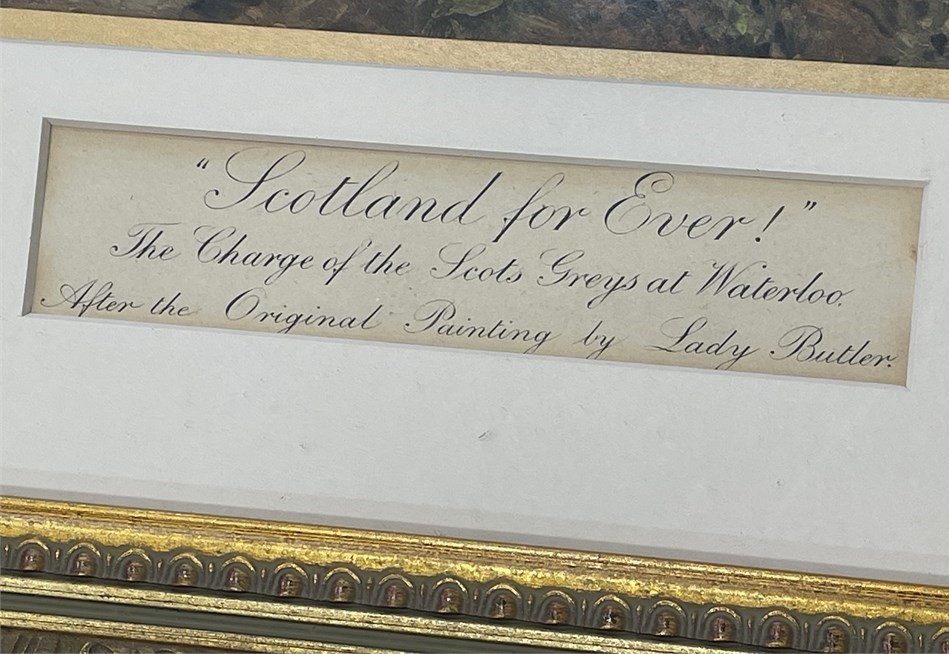 “Scotland for Ever!”
The Charge of the Scots Greys at Waterloo.
After the Original Painting by Lady Butler.